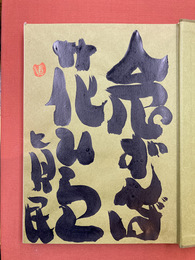 念ずれば
花ひらく
真民